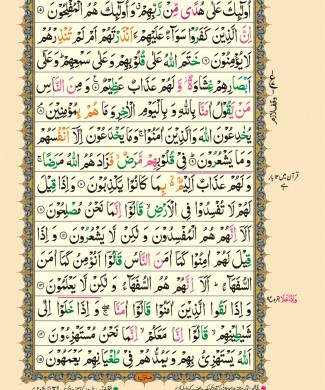 أُولَٰئِكَ عَلَىٰ هُدًى مِّن رَّبِّهِمْ ۖ وَأُولَٰئِكَ هُمُ الْمُفْلِحُونَ
إِنَّ الَّذِينَ كَفَرُوا سَوَاءٌ عَلَيْهِمْ أَأَنذَرْتَهُمْ أَمْ لَمْ تُنذِرْهُمْ
لَا يُؤْمِنُونَ خَتَمَ اللَّهُ عَلَىٰ قُلُوبِهِمْ وَعَلَىٰ سَمْعِهِمْ ۖ وَعَلَىٰ
أَبْصَارِهِمْ غِشَاوَةٌ ۖ وَلَهُمْ عَذَابٌ عَظِيمٌ وَمِنَ النَّاسِ
مَن يَقُولُ آمَنَّا بِاللَّهِ وَبِالْيَوْمِ الْآخِرِ وَمَا هُم بِمُؤْمِنِينَ
يُخَادِعُونَ اللَّهَ وَالَّذِينَ آمَنُوا ۚ وَمَا يَخْدَعُونَ إِلَّا أَنفُسَهُمْ
وَمَا يَشْعُرُونَ فِي قُلُوبِهِم مَّرَضٌ ۙ فَزَادَهُمُ اللَّهُ مَرَضًا ۚ
وَلَهُمْ عَذَابٌ أَلِيمٌ ۙ بِمَا كَانُوا يَكْذِبُونَ وَإِذَا قِيلَ
لَهُمْ لَا تُفْسِدُوا فِي الْأَرْضِ ۙ قَالُوا إِنَّمَا نَحْنُ مُصْلِحُونَ
أَلَا إِنَّهُمْ هُمُ الْمُفْسِدُونَ وَلَٰكِن لَّا يَشْعُرُونَ وَإِذَا
قِيلَ لَهُمْ آمِنُوا كَمَا آمَنَ النَّاسُ قَالُوا أَنُؤْمِنُ كَمَا آمَنَ
السُّفَهَاءُ ۗ أَلَا إِنَّهُمْ هُمُ السُّفَهَاءُ وَلَٰكِن لَّا يَعْلَمُونَ
وَإِذَا لَقُوا الَّذِينَ آمَنُوا قَالُوا آمَنَّا ۖ وَإِذَا خَلَوْا إِلَىٰ
شَيَاطِينِهِمْ ۙ قَالُوا إِنَّا مَعَكُمْ ۙ إِنَّمَا نَحْنُ مُسْتَهْزِئُونَ
اللَّهُ يَسْتَهْزِئُ بِهِمْ وَيَمُدُّهُمْ فِي طُغْيَانِهِمْ يَعْمَهُونَ
قرآن میں ۱۲ بار
ہے